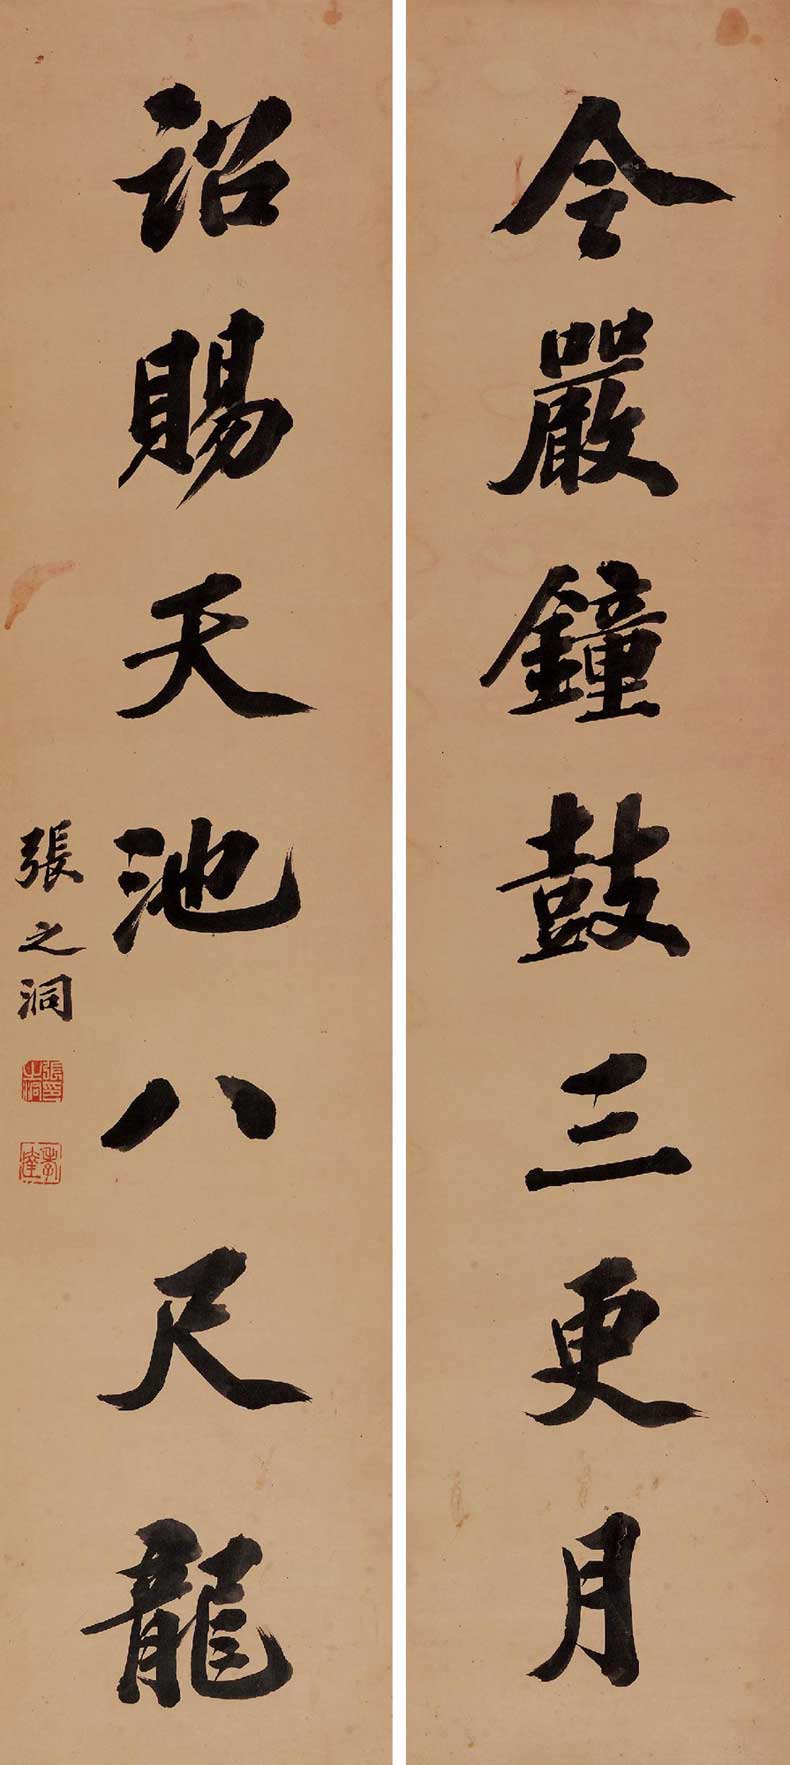 令嚴鐘鼓三更月
詔賜天池八尺龍
張之洞
張之洞印
孝達